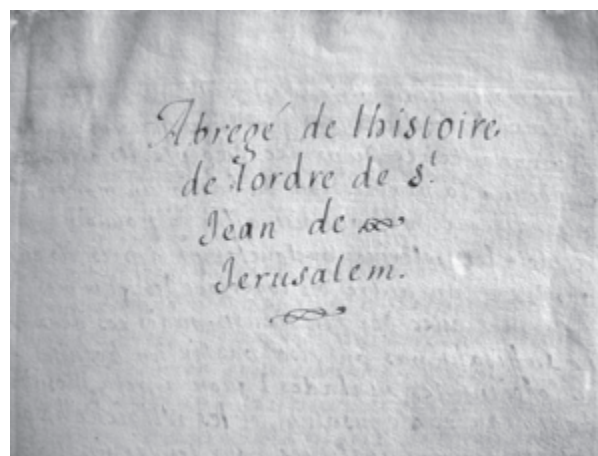 Abregé de lhistoire
de Lordre de st
Jean de
Jerusalem.